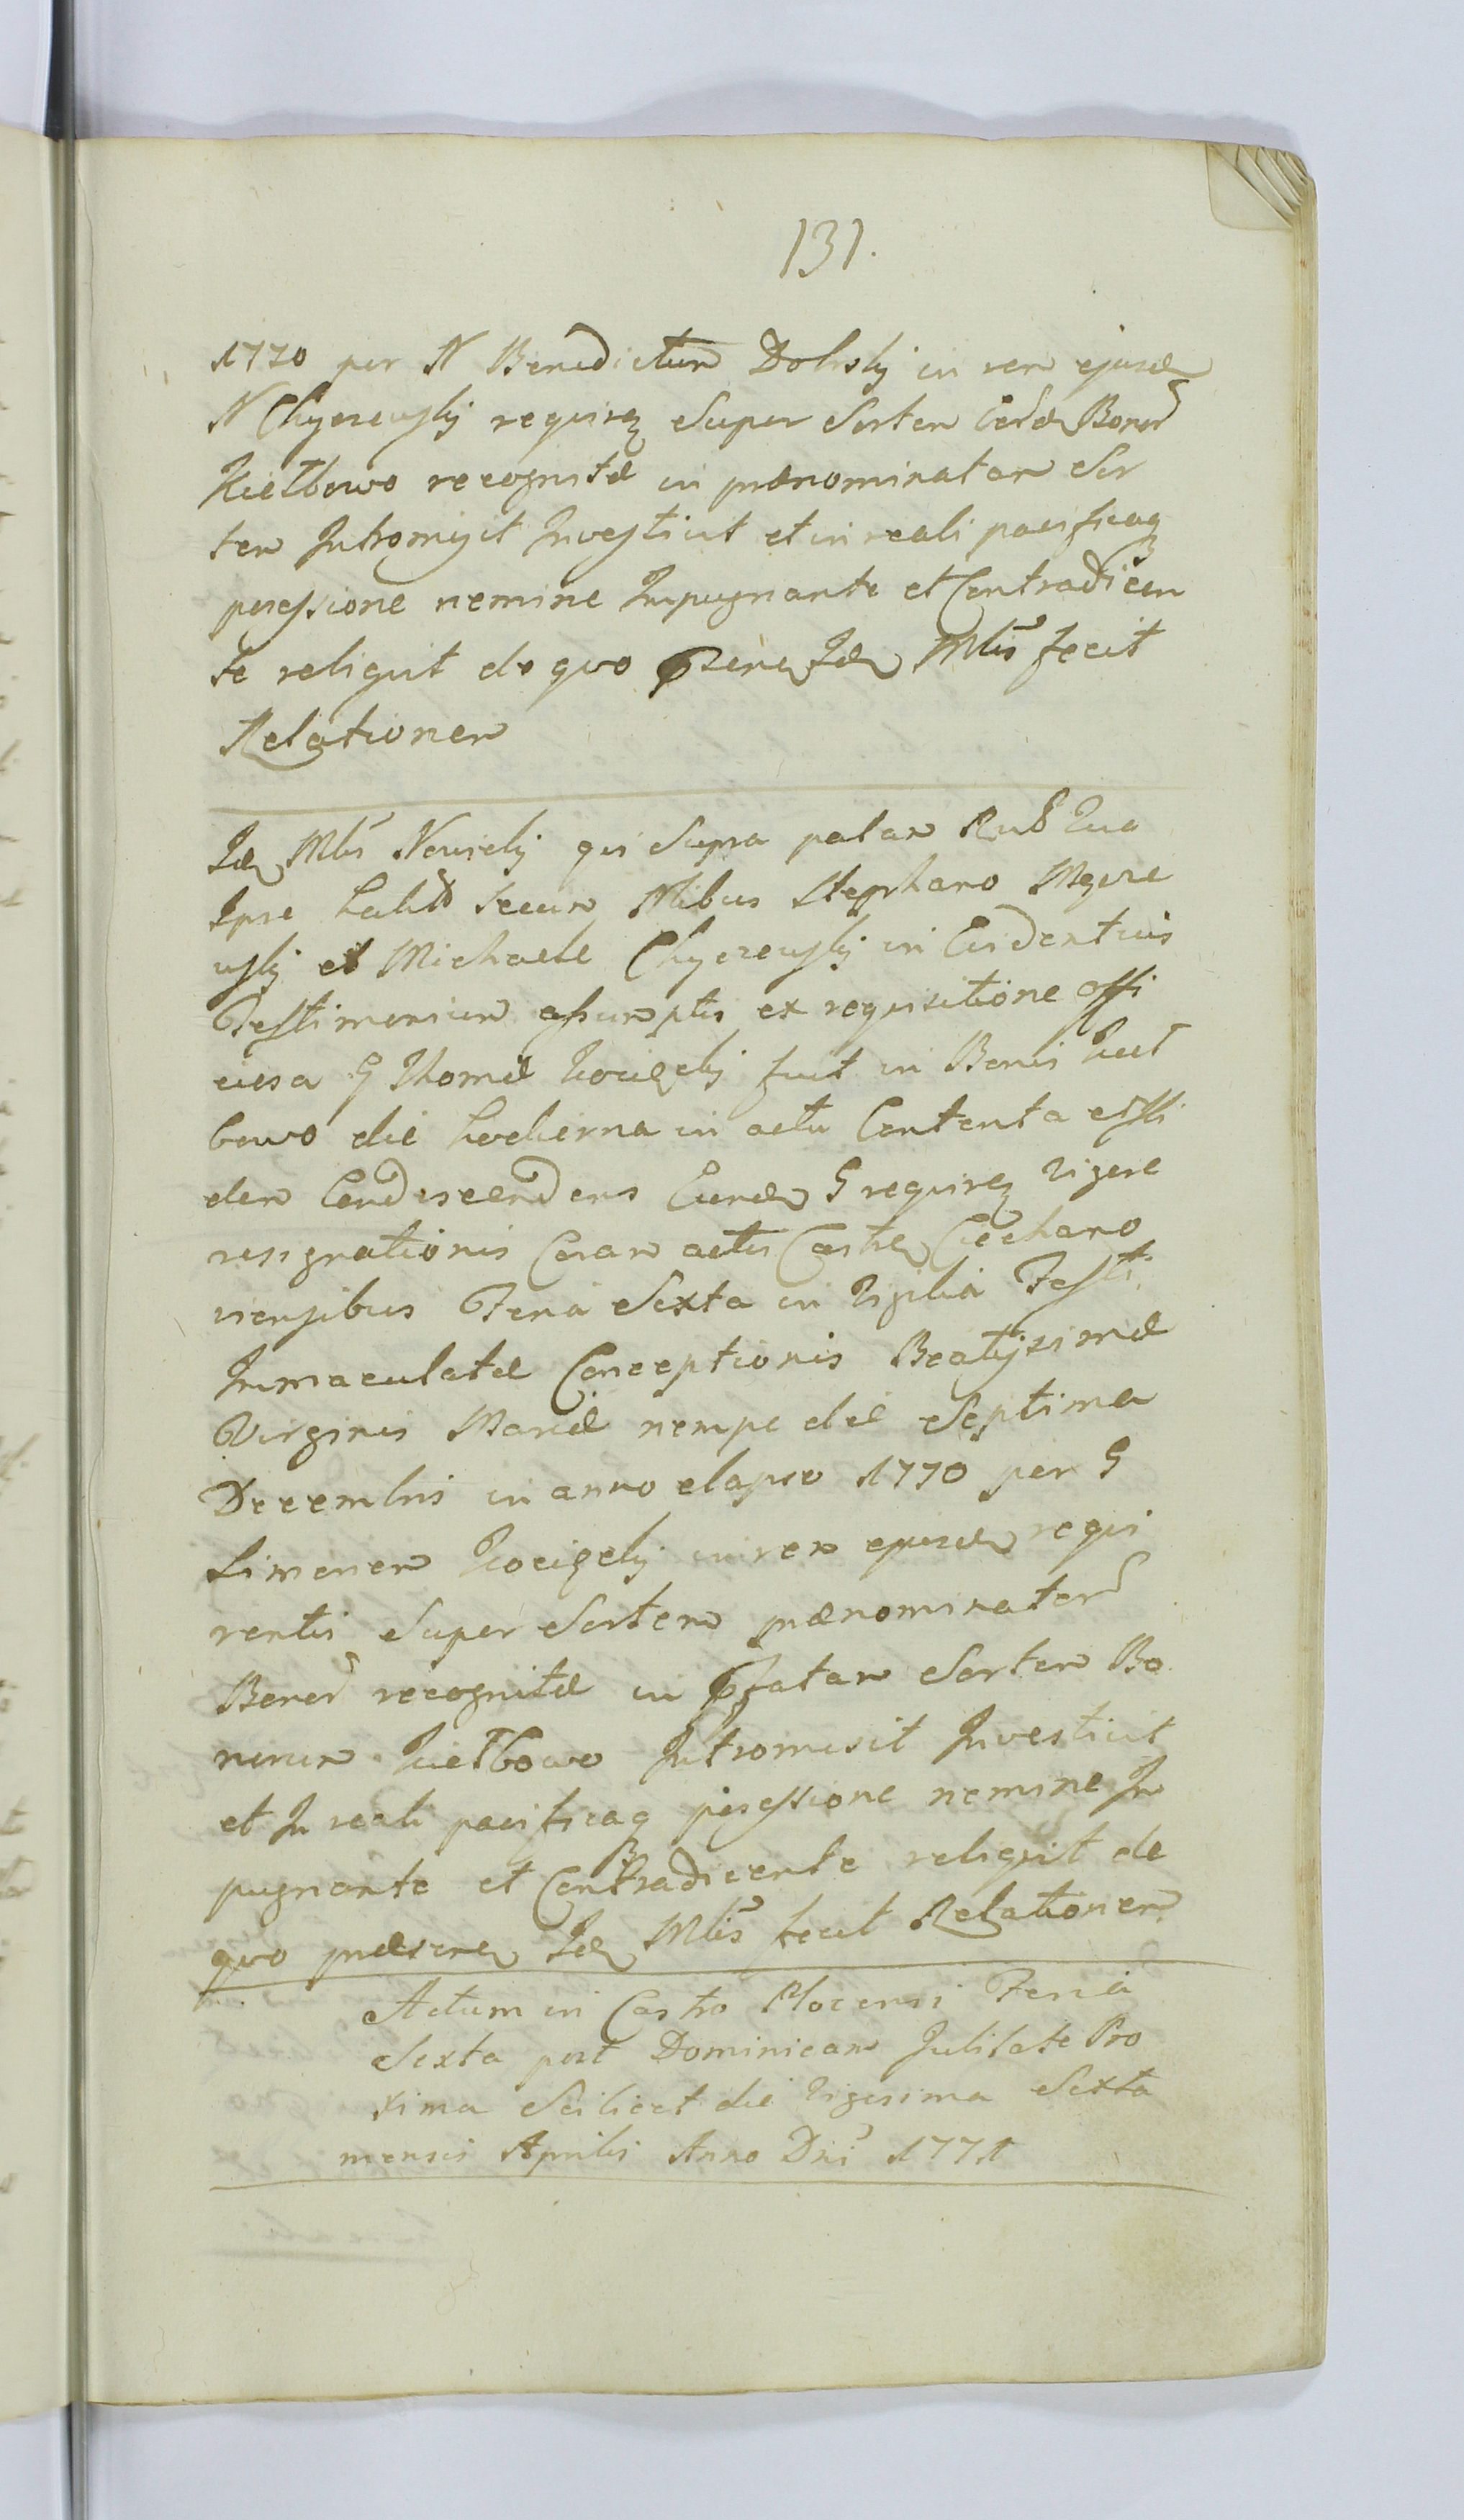 131.
1770 per N Benedictum Dolnslij in rem ejusdem
N Chyczewslij requirentis Super Sortem eorundem Bonor
Kiełbowo recognitæ in prænominatam Sor
tem Intromisit Investivit et in reali pacificaq
possessione nemine Impugnante et Contradicen
te reliquit de quo præsens Idem Mlis fecit
Relationem
Idem Mlis Nowislij qui Supra palam
Ipse habitis secum Nlibus Stephano
et Michaele Chyczewslij in Evidentius
Testimonium assumptis ex requisitione offi
ciosa G Thomæ Kocięslij fuit in Bonis Kieł
bowo die hodierna in actu Contenta
dem Condescendens Eundem G requirentem vigore
resignationis Coram actis Castren Ciechano
viensibus Feria Sexta in Vigilia Festi
Immaculatæ Conceptionis Beatissimæ
Virginis Mariæ nempe die Septima
Decembris in anno elapso 1770 per G
Simonem Kocięslij in rem ejusdem requi
rentis Super Sortem prænominator
Bonor recognitæ in præfatam Sortem Bo
norum Kiełbowo Intromisit Investivit
et In reali pacificaq possessione nemine Im
pugnante et Contradicente reliquit de
quo præsens Idem Mlis fecit Relationem
Actum in Castro Plocensi Feria
Sexta post Dominicam Jubilate Pro
xima Scilicet die Vigesima Sexta
mensis Aprilis Anno Dni 1771